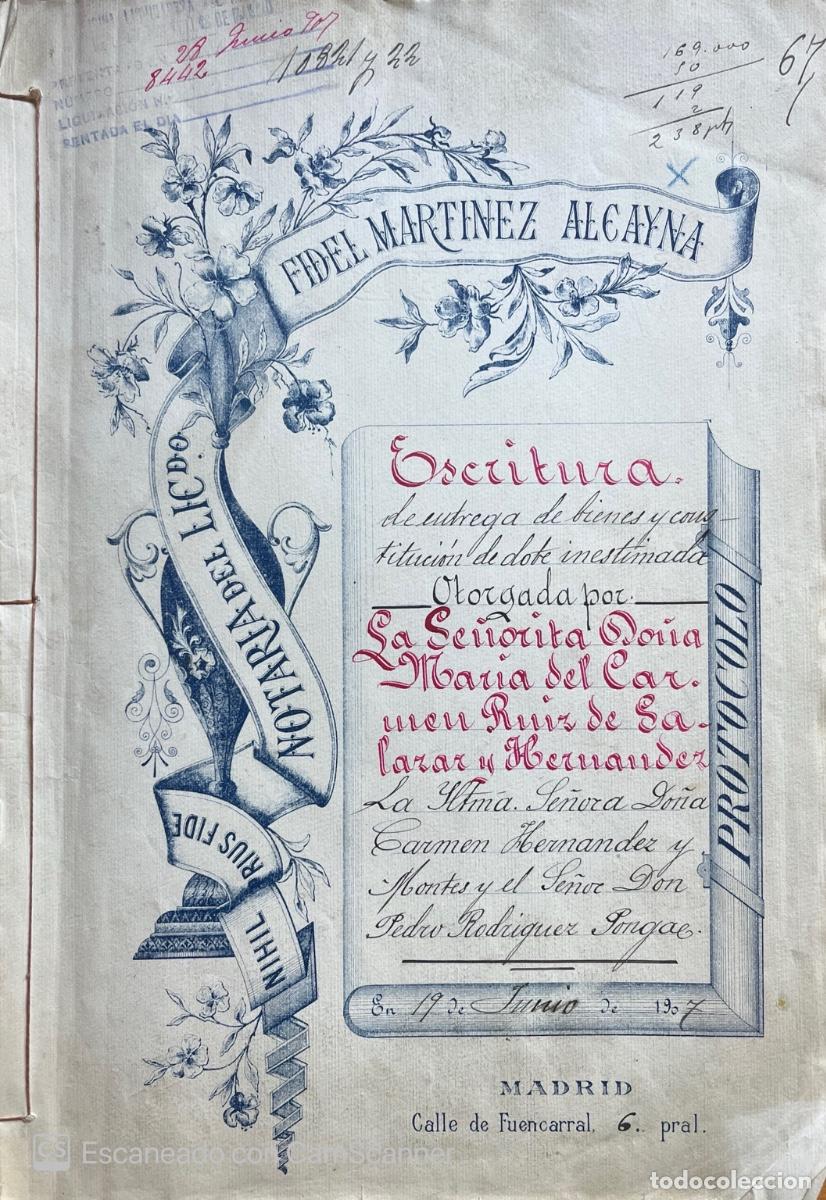 28 Junio 907
8442
NUMERO
LIQUIDACION N.
SENTADA EL DIA
10321 y 22
169.000
50
119
2
238 pts
67
X
FIDEL MARTINEZ ALCAYNA
NOTARIA DEL LICDO.
NIHIL
RIUS FIDE
Escritura.
de entrega de bienes y cons-
titución de dote inestimada
Otorgada por.
La Señorita Doña
Maria del Car-
men Ruiz de Sa-
lazar y Hernandez
La Yltmª. Señora Doña
Carmen Hernandez y
Montes y el Señor Don
Pedro Rodriguez Pongae.
PROTOCOLO
En 19 de Junio de 1907
MADRID
Calle de Fuencarral, 6. pral.
CS Escaneado con CamScanner
todocoleccion